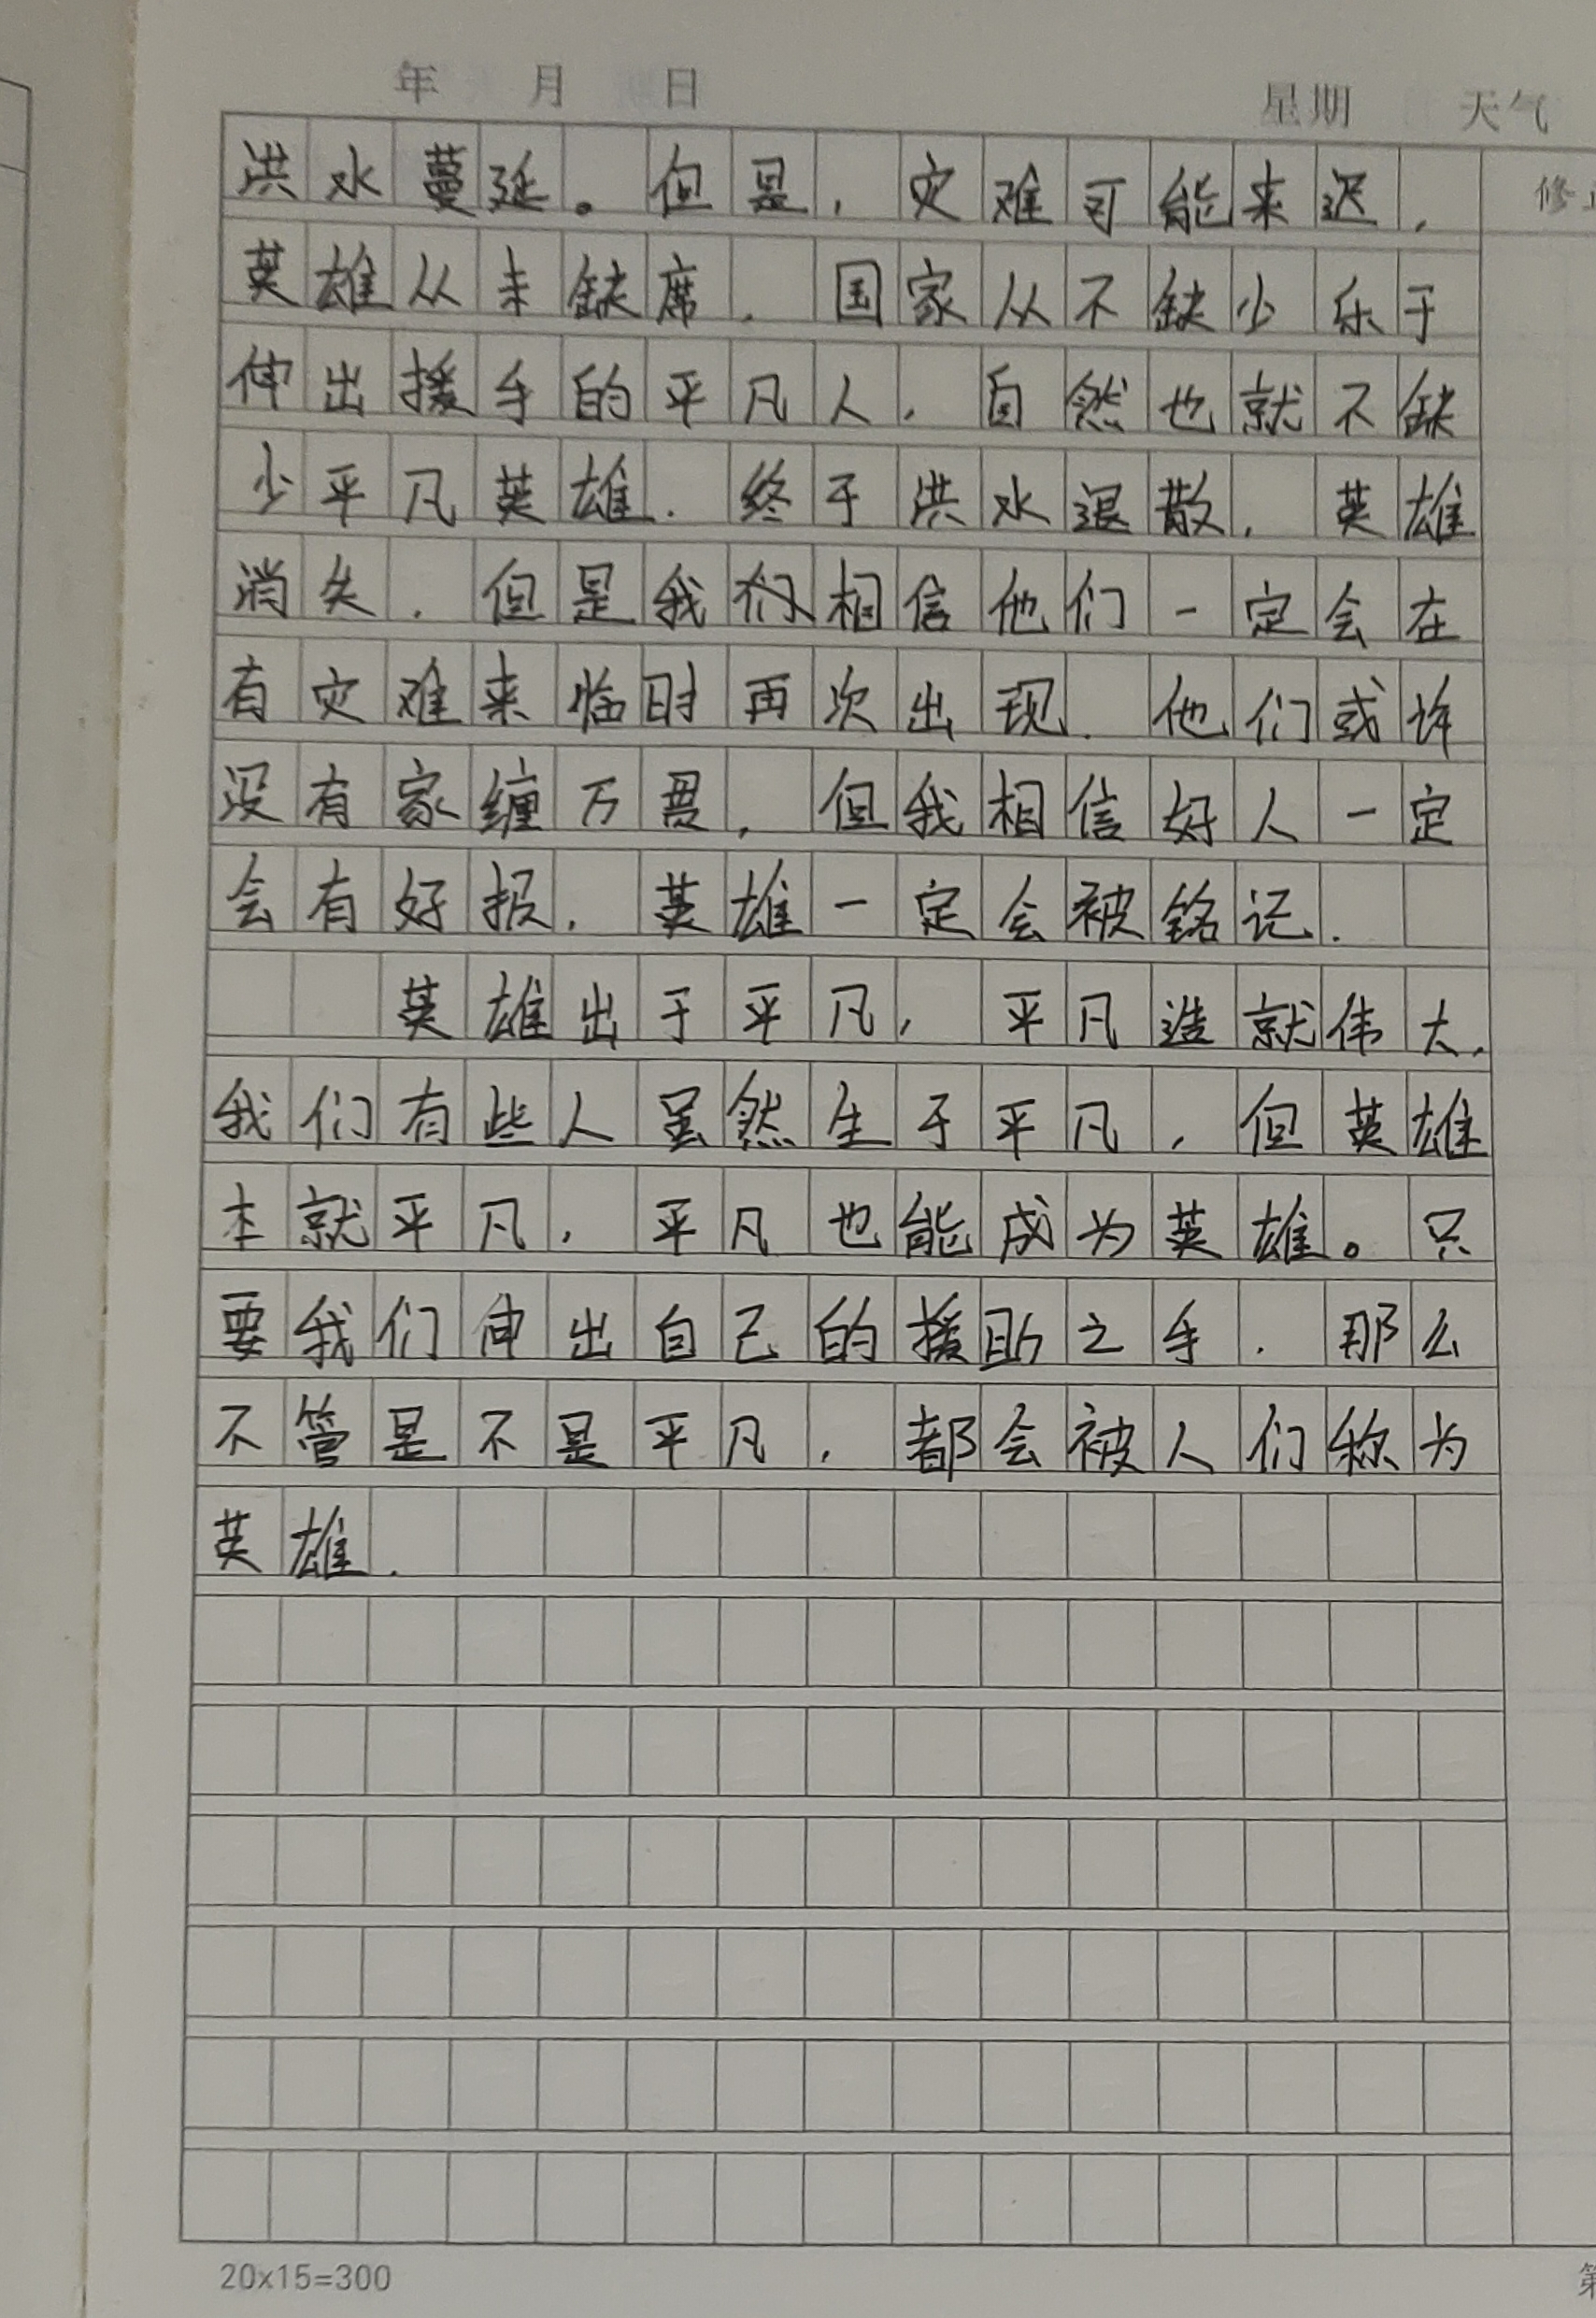 年 月 日 星期 天气
修
洪水蔓延。但是,灾难可能来迟,
英雄从未缺席.国家从不缺少乐于
伸出援手的平凡人,自然也就不缺
少平凡英雄.终于洪水退散,英雄
消失.但是我们相信他们一定会在
有灾难来临时再次出现.他们或许
没有家缠万贯,但我相信好人一定
会有好报,英雄一定会被铭记.
英雄出于平凡,平凡造就伟大,
我们有些人虽然生于平凡,但英雄
本就平凡,平凡也能成为英雄。只
要我们伸出自己的援助之手.那么
不管是不是平凡,都会被人们称为
英雄.
20x15=300
第